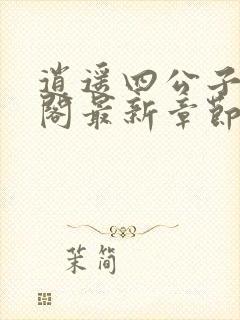 逍遥四公子
阁最新章节
茉简